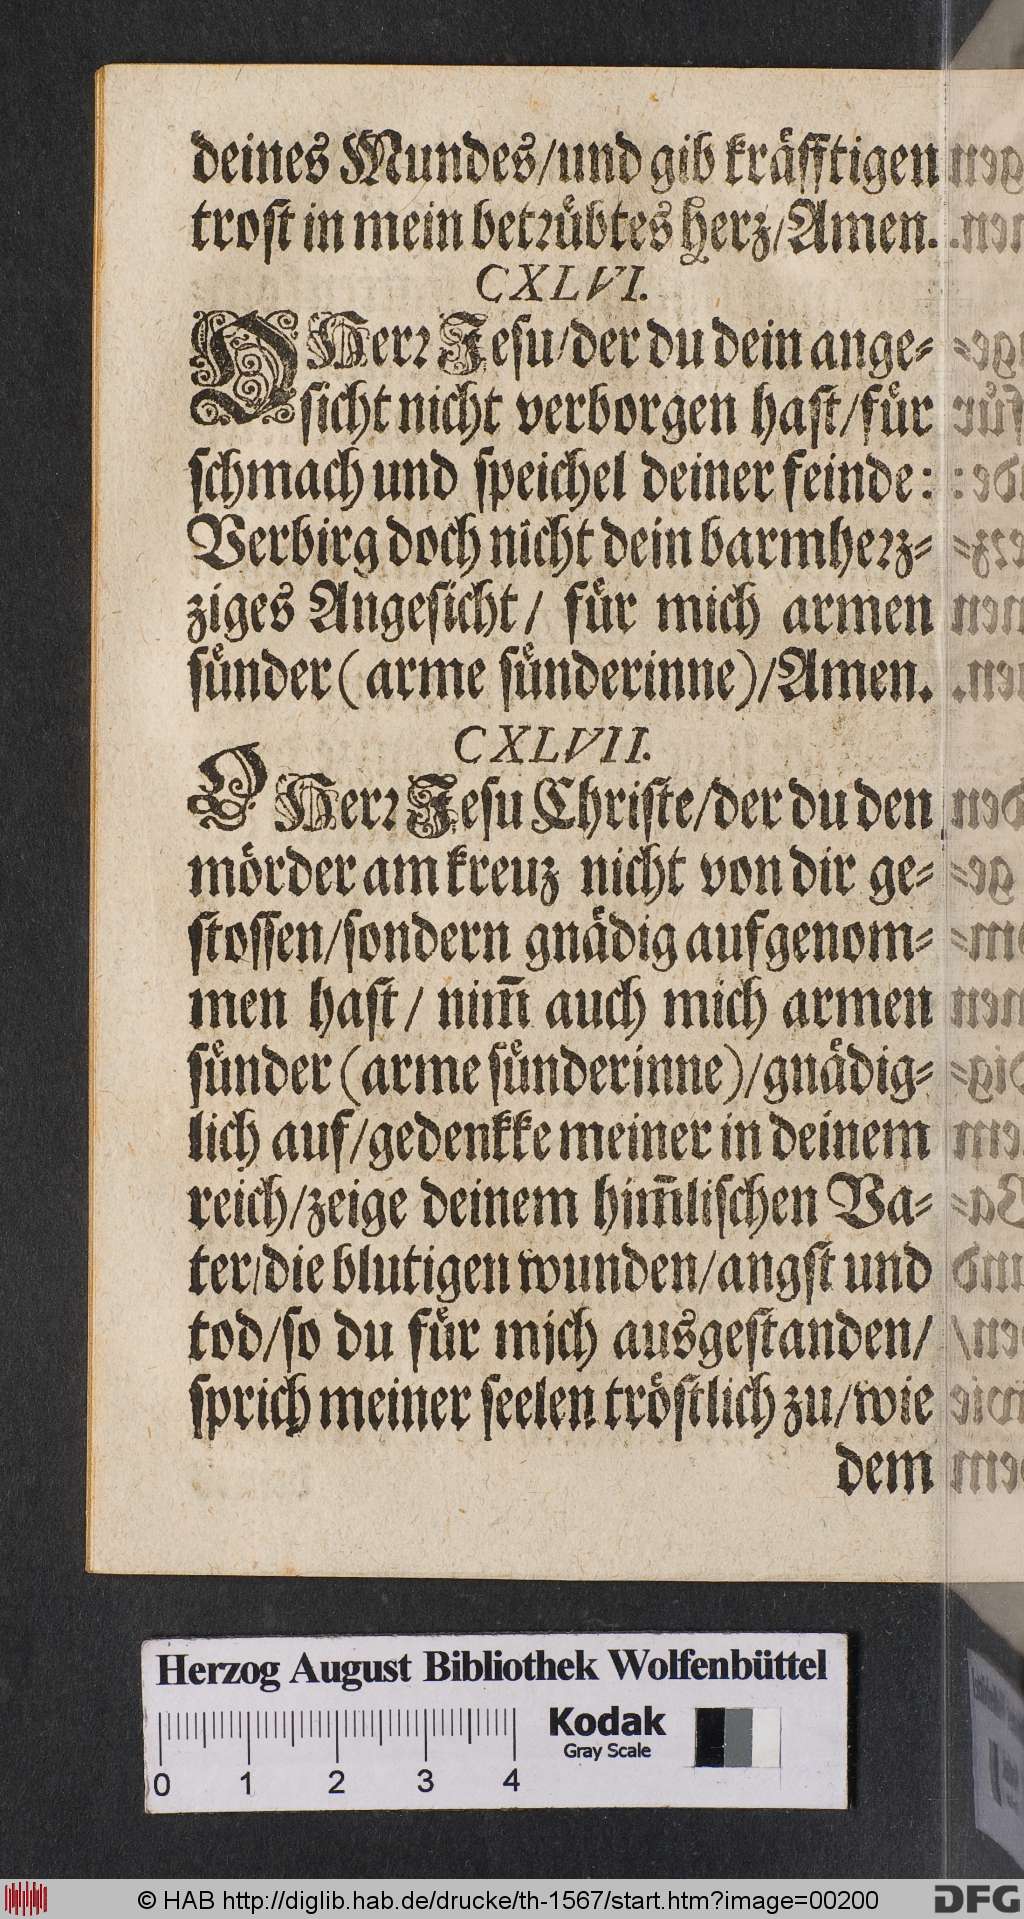 deines Mundes/und gib kräfftigen
trost in mein betrübtes Herz/Amen.
CXLVI.
O Herr Jesu/der du dein ange-
sicht nicht verborgen hast/für
schmach und speichel deiner feinde:
Verbirg doch nicht dein barmherz-
ziges Angesicht/ für mich armen
sünder (arme sünderinne)/Amen.
CXLVII.
O Herr Jesu Christe/der du den
mörder am kreuz nicht von dir ge-
stossen/sondern gnädig aufgenom-
men hast/ nim̃ auch mich armen
sünder (arme sünderinne)/gnädig-
lich auf/gedenkke meiner in deinem
reich/zeige deinem him̃lischen Va-
ter/die blutigen wunden/angst und
tod/so du für mich ausgestanden/
sprich meiner seelen tröstlich zu/wie
dem
Herzog August Bibliothek Wolfenbüttel
Kodak
Gray Scale
0 1 2 3 4
© HAB http://diglib.hab.de/drucke/th-1567/start.htm?image=00200
DFG